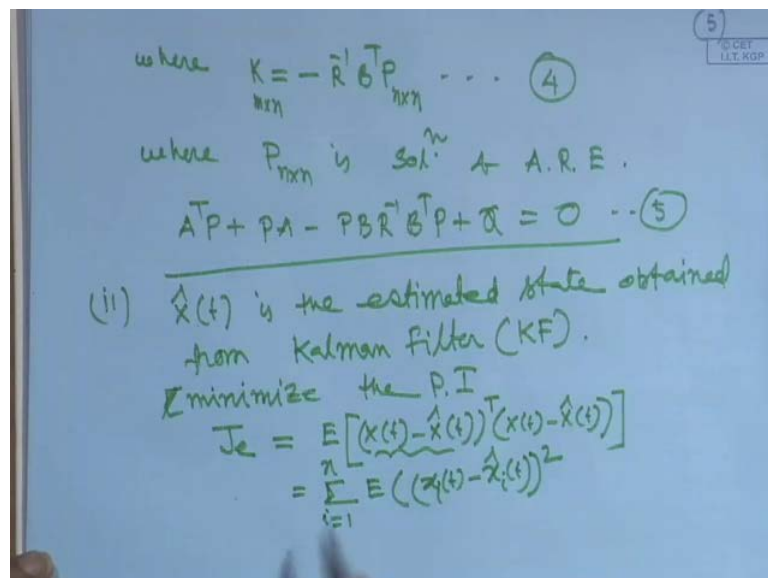 5
© CET
I.I.T. KGP
where K = - R⁻¹ BᵀP ... ④
m×n n×n
where Pn×n is solⁿ. of A.R.E.
AᵀP + PA - PBR⁻¹BᵀP + Q = 0 ..⑤
(ii) x̂(t) is the estimated state obtained
from Kalman Filter (KF).
minimize the P.I
Je = E[(x(t) - x̂(t))ᵀ(x(t) - x̂(t))]
= Σⁿᵢ₌₁ E((xᵢ(t) - x̂ᵢ(t))²